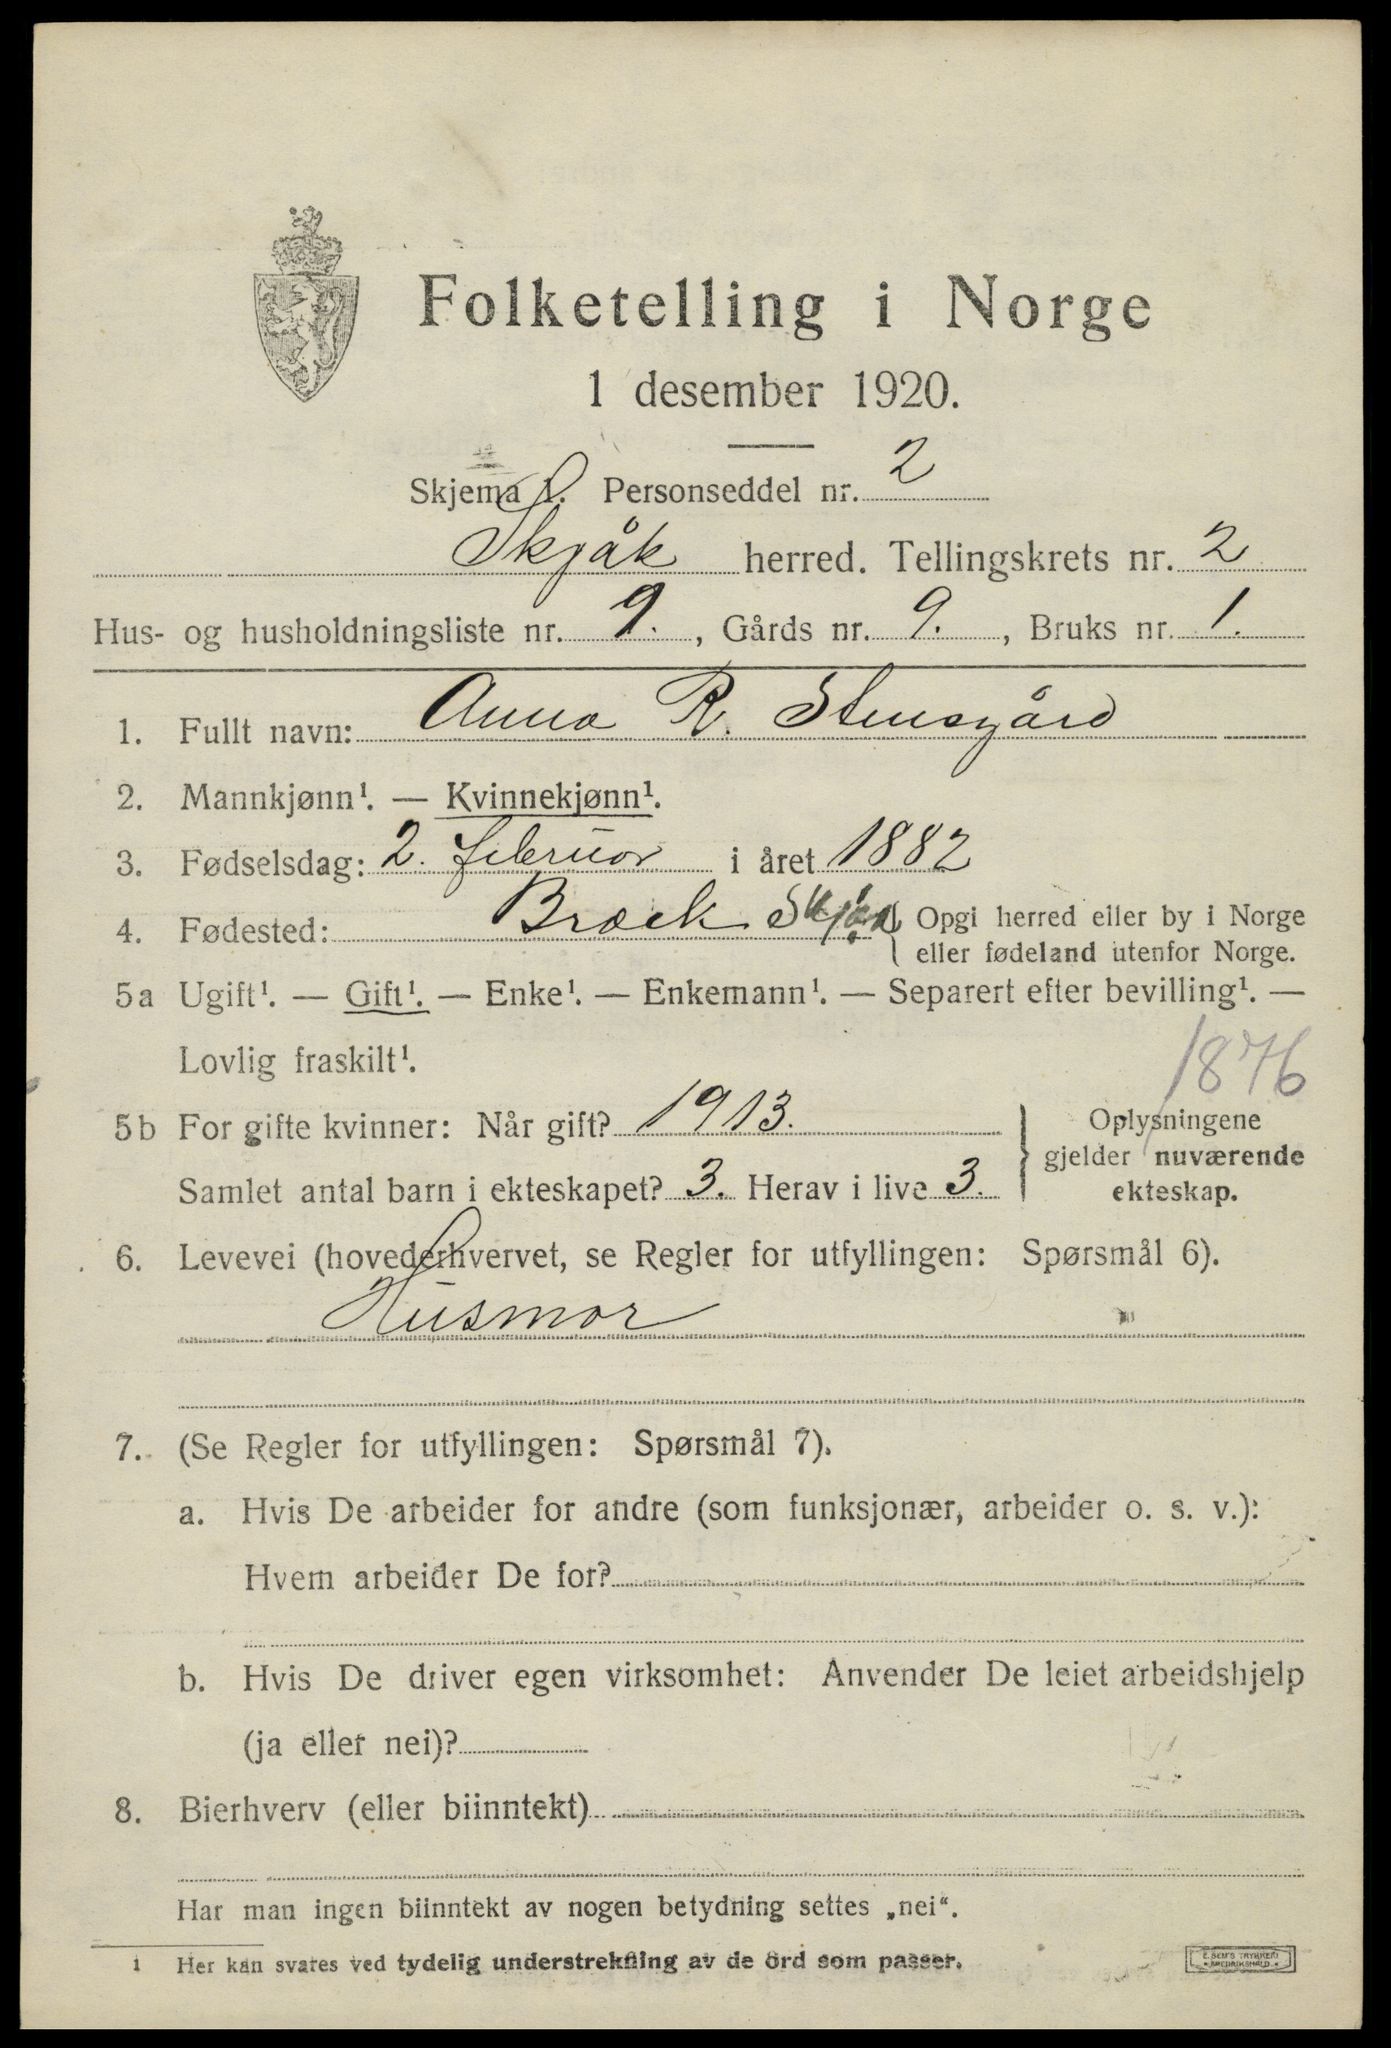 Folketelling i Norge
1 desember 1920.
Skjema 1. Personseddel nr. 2
Skjåk herred. Tellingskrets nr. 2
Hus- og husholdningsliste nr. 9., Gårds nr. 9., Bruks nr. 1.
1. Fullt navn: Anna R. Stensgård
2. Mannkjønn¹. — Kvinnekjønn¹.
3. Fødselsdag: 2. februar i året 1882
4. Fødested: Bræk Skjåk { Opgi herred eller by i Norge
eller fødeland utenfor Norge.
5a Ugift¹. — Gift¹. — Enke¹. — Enkemann¹. — Separert efter bevilling¹. —
Lovlig fraskilt¹.
1876
5b For gifte kvinner: Når gift? 1913.
Samlet antal barn i ekteskapet? 3. Herav i live 3.
} Oplysningene
gjelder nuværende
ekteskap.
6. Levevei (hovederhvervet, se Regler for utfyllingen: Spørsmål 6).
Husmor
7. (Se Regler for utfyllingen: Spørsmål 7).
a. Hvis De arbeider for andre (som funksjonær, arbeider o. s. v.):
Hvem arbeider De for?
b. Hvis De driver egen virksomhet: Anvender De leiet arbeidshjelp
(ja eller nei)?
8. Bierhverv (eller biinntekt)
Har man ingen biinntekt av nogen betydning settes „nei“.
1 Her kan svares ved tydelig understrekning av de ord som passer.
E. SEM'S TRYKKERI
FREDRIKSHALD